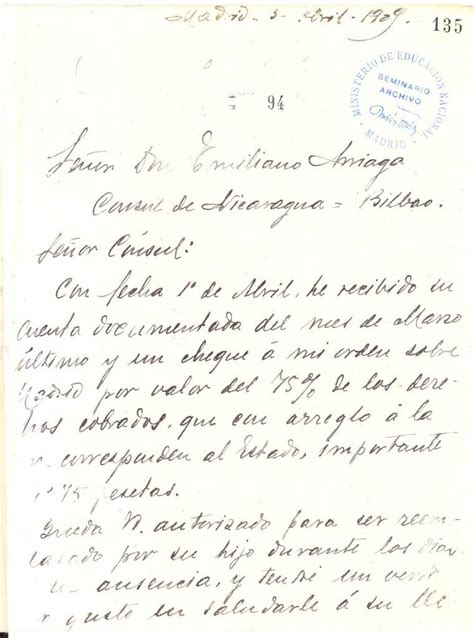 Madrid 3 Abril 1909
135
MINISTERIO DE EDUCACION NACIONAL
SEMINARIO
ARCHIVO
MADRID
94
Señor Don Emiliano Arriaga
Consul de Nicaragua = Bilbao.
Señor Cónsul:
Con fecha 1º de Abril, he recibido su
cuenta documentada del mes de Marzo
último y un cheque á mi orden sobre
Madrid por valor del 75% de los dere-
hos cobrados, que con arreglo á la
corresponden al Estado, importante
75 pesetas.
Queda V. autorizado para ser reem-
lazado por su hijo durante los dias
ausencia, y tendré un verd
gusto en saludarle á su lle